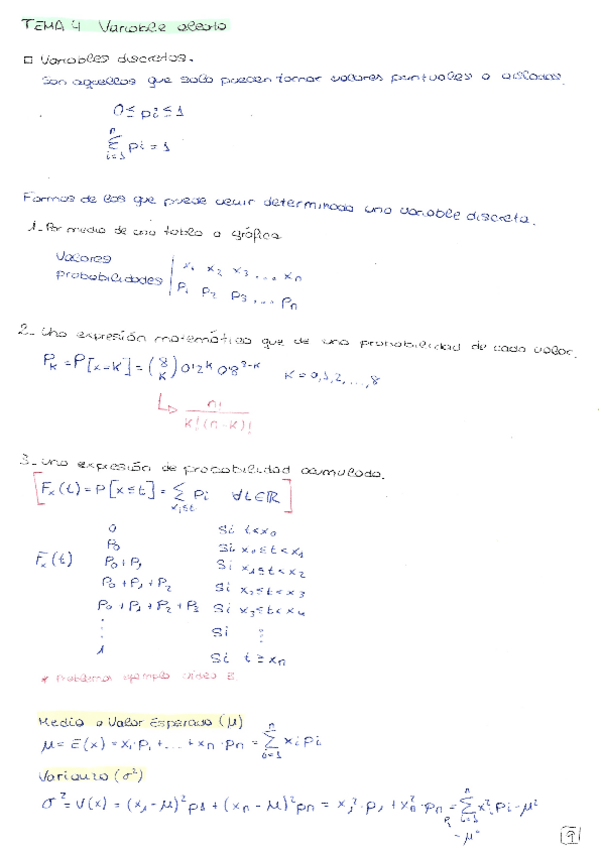 TEMA 4 Variable aleato
□ Variables discretas.
Son aquellas que solo pueden tomar valores puntuales o aislados
0 ≤ pi ≤ 1
n
Σ pi = 1
i=1
Formas de las que puede venir determinada una variable discreta.
1. Por medio de una tabla o gráfica
Valores | x1 x2 x3 .... xn
probabilidades | P1 P2 P3 .... Pn
2- Una expresión matemática que de una probabilidad de cada valor.
PK = P[x=K] = (8 K) 0'2^K 0'8^2-K K=0,1,2,...,8
↳ n! / K!(n-K)!
3- una expresión de probabilidad acumulada.
[Fx(t) = P[x≤t] = Σ xi≤t Pi ∀t∈ℝ]
0 Si t<x0
P0 Si x0≤t<x1
Fx(t) P0+P1 Si x1≤t<x2
P0+P1+P2 Si x2≤t<x3
P0+P1+P2+P3 Si x3≤t<x4
⋮ Si ⋮
1 Si t≥xn
* Problema ejemplo video
Media o Valor Esperado (μ)
μ = E(x) = x1·p1 + .... + xn·pn = Σ xi pi
Varianza (σ²)
σ² = V(x) = (x1-μ)² p1 + (xn-μ)² pn = x1²·p1 + xn²·pn - μ² = Σ xi²·pi - μ²
9